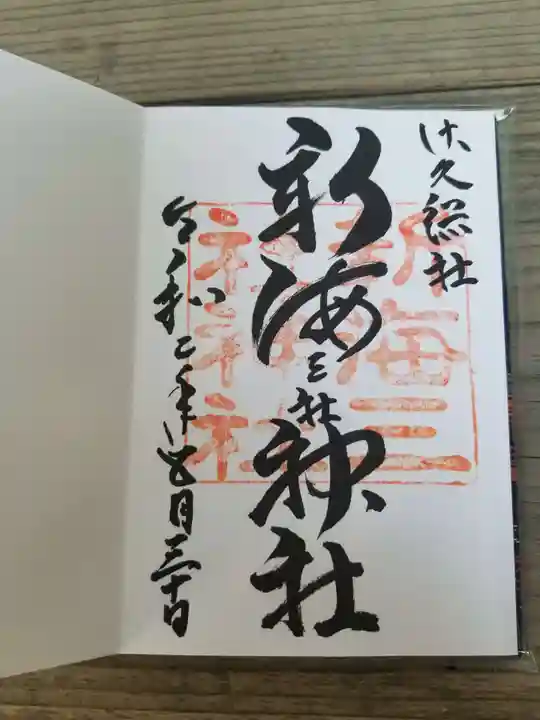 佐久総社
新海三社神社
令和二年月三十日
新海三
社神社